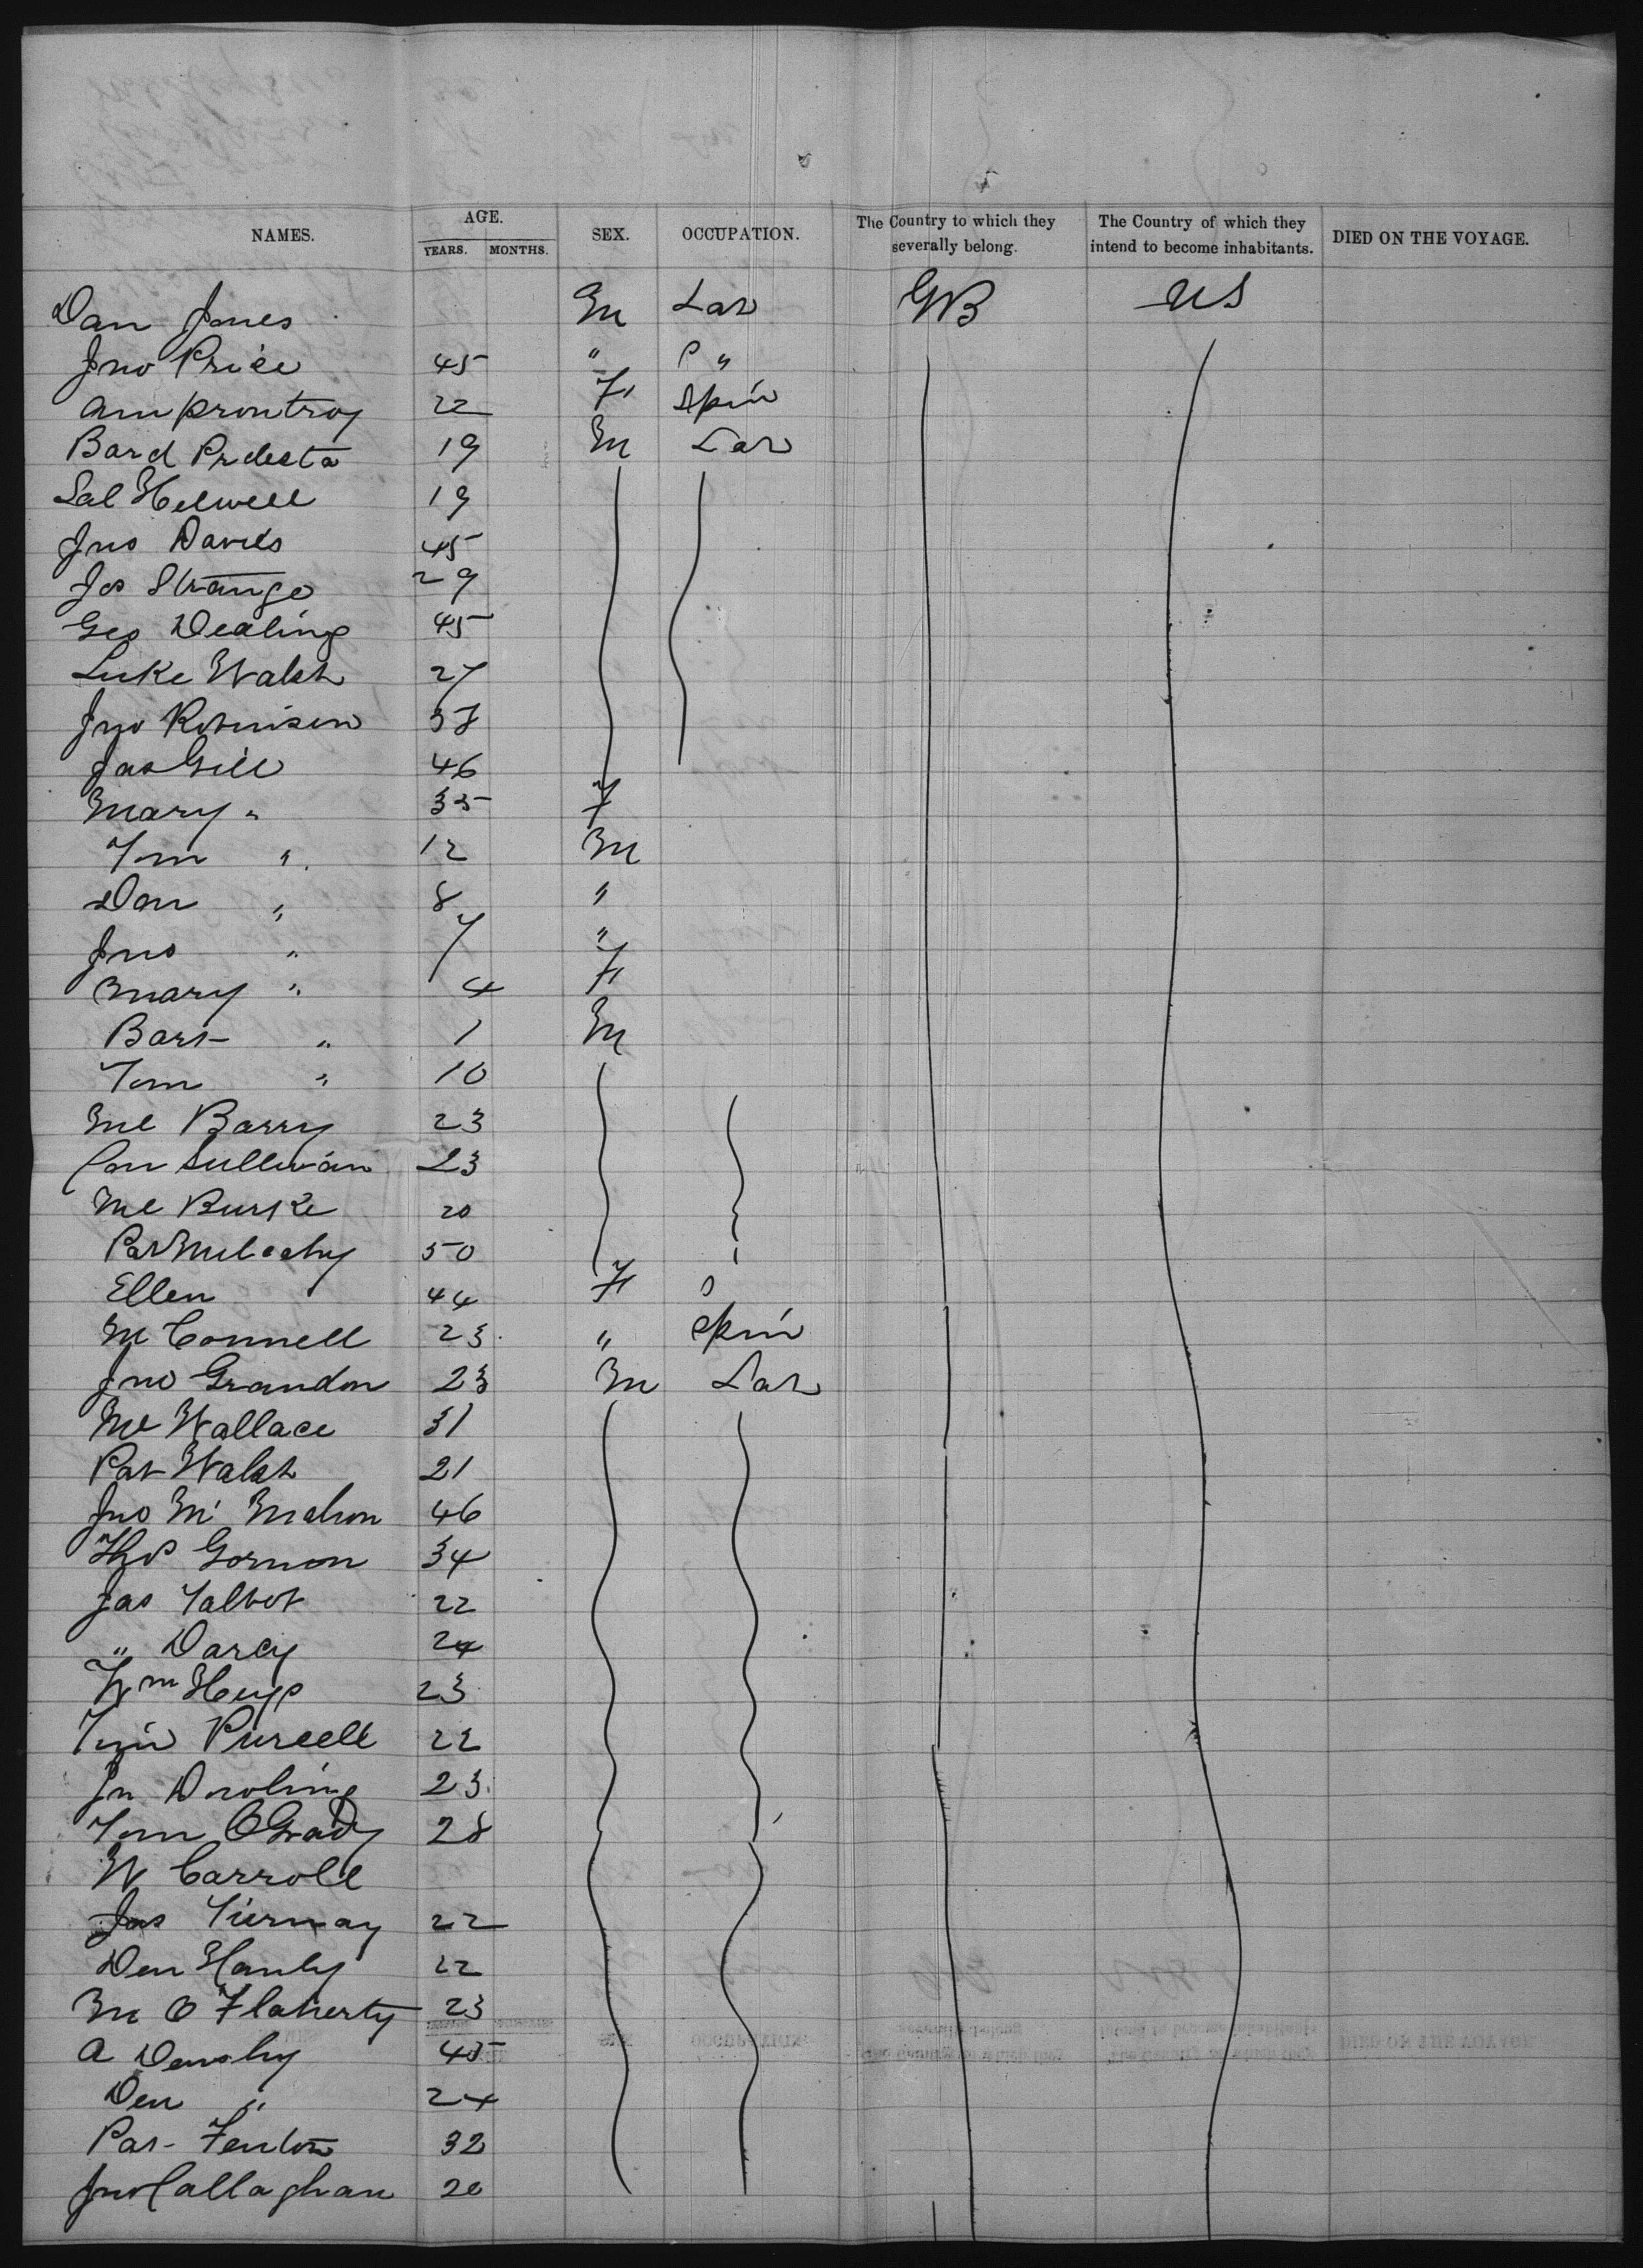 NAMES. AGE. YEARS. MONTHS. SEX. OCCUPATION. The Country to which they severally belong. The Country of which they intend to become inhabitants. DIED ON THE VOYAGE.
Dan Jones M Lab GB US
Jno Price 45 " "
22 F Spin
19 M Lab
19
Jno Davies 45
Jos Strange 29
Geo Dealing 45
Luke Walsh 27
Jno Robinson
Jas Gill 46
Mary " 35 F
Tom " 12 M
Dan " 8 "
Jno " 7 "
Mary " 4 F
Bart " 1 M
Tom " 10
Ml Barry 23
Con Sullivan 23
Ml Burke 20
Pat Mulcahy 50
Ellen 44 F
M Connell 23 " Spin
Jno Grandon 23 M Lab
Ml Wallace 31
Pat Walsh 21
Jno Mc Mahon 46
Thos Gorman 34
Jas Talbot 22
" Darcy 24
Wm Heys 23
Tim Purcell 22
Jn Dowling 23
Tom O Grady 28
W Carroll
Jas Tiernay 22
Den Hanly 22
M O Flaherty 23
A 45
Den " 24
Pat Fenton 32
Jno Callaghan 20